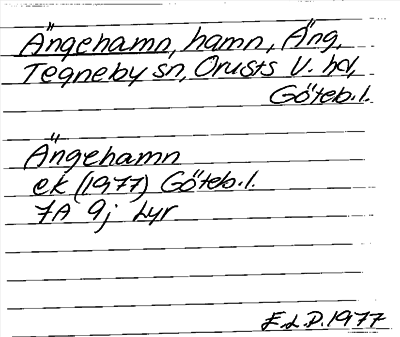 Ängehamn, hamn, Äng,
Tegneby sn, Orusts V. hd,
Göteb.l.
Ängehamn
ek (1977) Göteb.l.
7A 9j Lyr
E.L.P.1977